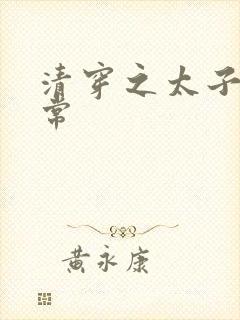 清穿之太子
常
黄永康